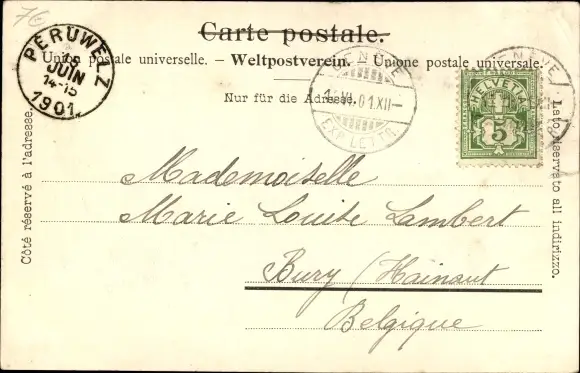 7c
Carte postale.
Union postale universelle. — Weltpostverein. — Unione postale universale.
Nur für die Adresse.
PERUWELZ
JUIN
14-15
1901
GENÈVE
VI. 01. XII—
EXP. LETTR.
HELVETIA
5
Côté réservé à l'adresse.
Lato riservato all indirizzo.
Mademoiselle
Marie Louise Lambert
Bury (Hainaut
Belgique